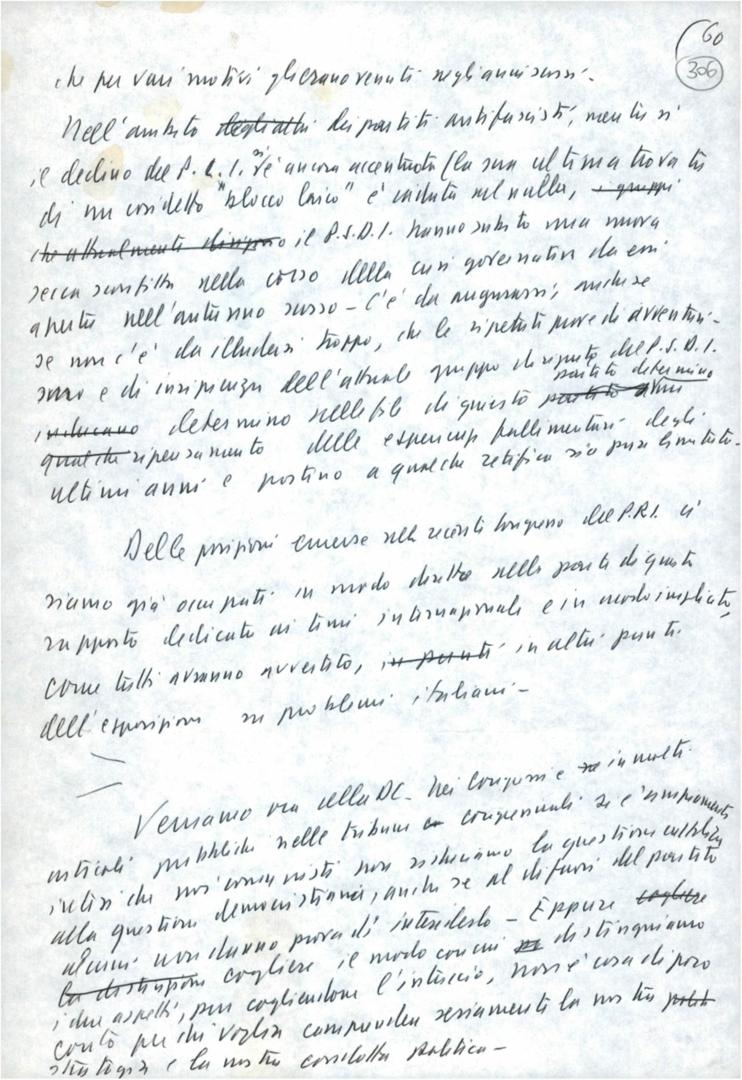 60
306
che per vari motivi gli erano venuti negli anni scorsi.
Nell'ambito degli altri dei partiti antifascisti, mentre si
il declino del P.L.I. s'è ancora accentuato (la sua ultima trovata
di un cosidetto "blocco laico" è caduta nel nulla, i gruppi
che attualmente dirigono il P.S.D.I. hanno subito una nuova
secca sconfitta nella corso della crisi governativa da essi
aperta nell'autunno scorso - C'è da augurarsi, anche se
se non c'è da illudersi troppo, che le ripetute prove di avventuri-
smo e di insipienza dell'attuale gruppo dirigente del P.S.D.I.
inducano determino nelle file di questo partito determino
qualche ripensamento delle esperienze fallimentari degli
ultimi anni e portino a qualche retifica sia pure limitata.
Delle posizioni emerse nel recente Congresso del P.R.I. ci
siamo già occupati in modo diretto nella parte di questo
rapporto dedicata ai temi internazionali e in modo implicito,
come tutti avranno avvertito, in punti in altri punti
dell'esposizione su problemi italiani -
Veniamo ora alla DC. Nei Congressi e in molti
articoli pubblicati nelle tribune congressuali si è ampiamente
inteso che noi comunisti non riduciamo la questione cattolica
alla questione democristiana, anche se al di fuori del partito
alcuni non danno prova di intenderlo - Eppure cogliere
la distinzione cogliere il modo con cui distinguiamo
i due aspetti, pur cogliendone l'intreccio, non è cosa di poco
conto per chi voglia comprendere seriamente la nostra
strategia e la nostra condotta politica -